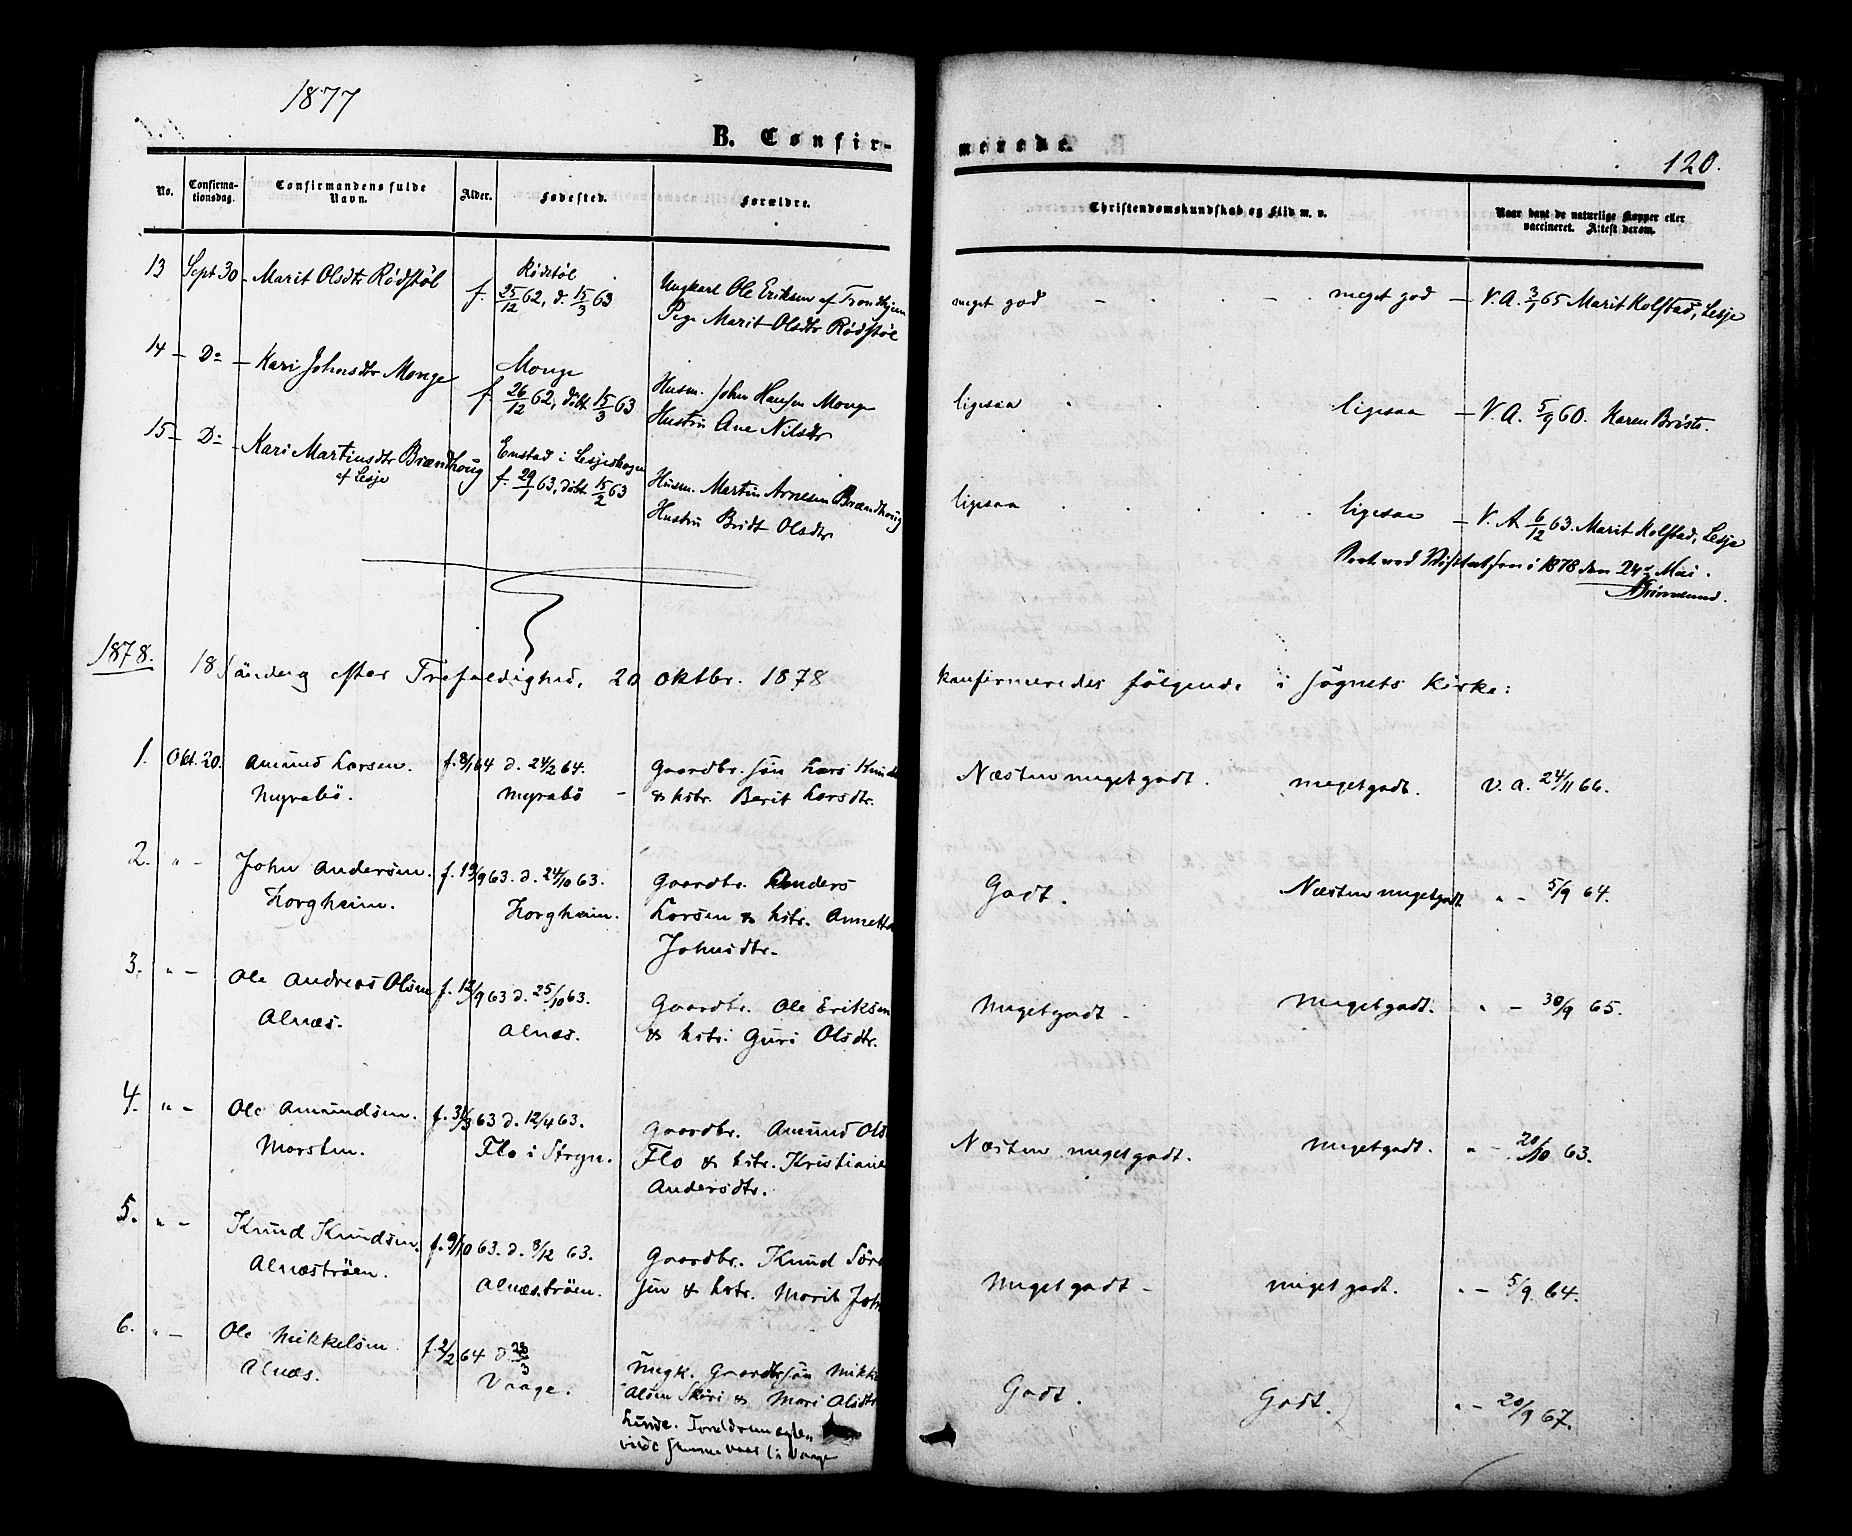 1877
B. Confir-
merede.
120.
No.
Confirma-
tionsdag.
Confirmandens fulde
Navn.
Alder.
Fødested.
Forældre.
Christendomskundskab og Flid m. v.
Naar havt de naturlige Kopper eller
vaccineret. Attest derom.
13 Sept 30 - Marit Olsdtr Rödstöl f. Rödstöl Ungkarl Ole Eriksen af Trondhjem meget god - meget god - V.A. 3/1 65 Marit Kolstad, Lesje
25/12 62, d. 15/3 63 Pige Marit Olsdtr Rödstöl
14 - Do - Kari Johnsdtr Monge f. Monge Husm. John Hansen Monge ligesaa ligesaa - V.A. 5/9 60. Karen Briste.
26/12 62, döbt 15/3 63 Hustru Ane Nilsdtr
15 - Do - Kari Martinsdtr Brændhoug Enstad i Lesjeskogen Husm. Martin Arnesen Brændhoug ligesaa ligesaa - V. A. 6/12 63. Marit Kolstad, Lesje
af Lesje f. 29/1 63, döbt 15/2 63 Hustru Bridt Olsdtr
ved Visitatsen i 1878 den 24de Mai.
1878. 18 Söndag efter Trefoldighed, 20 oktbr. 1878 konfirmeredes fölgende i Sognets Kirke:
1. Okt. 20. Amund Larsen f. 8/1 64 d. 24/2 64. Gaardbr. sön Lars Knuds Næsten meget godt. meget godt. V. a. 24/11 66.
Myrabö. Myrabö - & hstr. Berit Larsdtr.
2. " - John Andersen. f. 19/9 63. d. 24/10 63. Gaardbr. Anders Godt. Næsten meget godt " - 5/9 64.
Horgheim. Horgheim. Larsen & hstr. Annette
Johnsdtr.
3. " - Ole Andreas Olsen f. 12/9 63 d. 25/10 63. Gaardbr. Ole Eriksen Meget godt - Meget godt. " - 30/9 65.
Alnæs. Alnæs. & hstr. Guri Olsdtr.
4. " - Ole Amundsen. f. 31/3 63 d. 12/4 63. Gaardbr. Amund Ols Næsten meget godt. meget godt. " - 20/10 63.
Marsten. Flo i Stryn. Flo & hstr. Kristiane
Andersdtr.
5. " - Knud Knudsen. f. 9/10 63. d. 8/12 63. Gaardbr. Knud Sör Meget godt - meget godt. " - 5/9 64.
Alnæströen. Alnæströen. sen & hstr. Marit John
6. " - Ole Mikkelsen f. 2/2 64 d. 28/3 Ungk. Gaardbrsön Mikk Godt. Godt. " - 20/9 67.
Alnæs. Vaage. Olsen Skiri & Mari Olsdtr
Lunde.